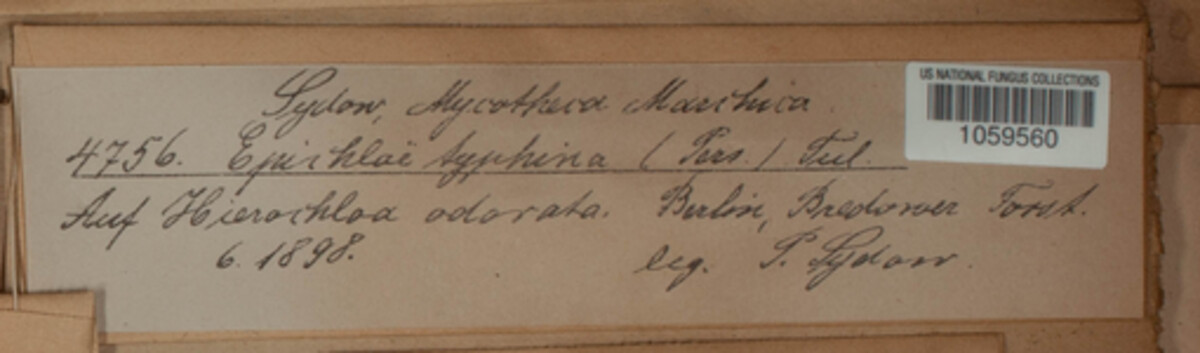 Sydow, Mycotheca Marchica
US NATIONAL FUNGUS COLLECTIONS
1059560
4756. Epichloë typhina (Pers.) Tul.
Auf Hierochloa odorata. Berlin, Bredower Forst.
6. 1898. leg. P. Sydow.